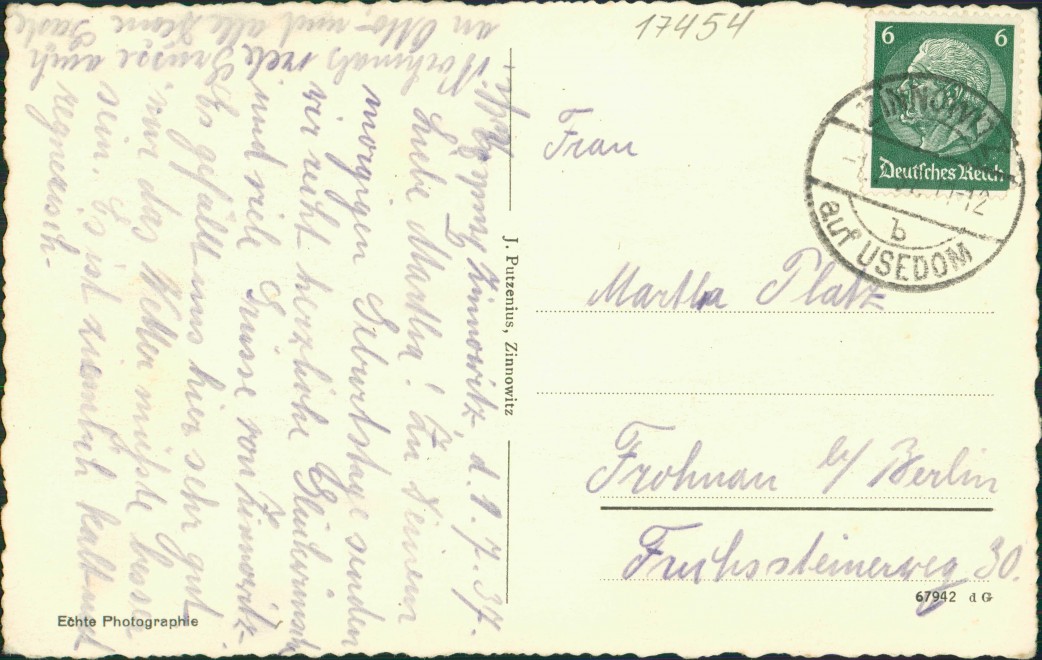 17454
6 6
Deutsches Reich
ZINNOWITZ
11-12
b
auf USEDOM
Frau
Martha Platz
Frohnau b/ Berlin
30.
J. Putzenius, Zinnowitz
67942 d G
Echte Photographie
Zinnowitz, d. 1.7.37.
Liebe Martha! Zu Deinem
morgigen Geburtstage senden
wir recht herzliche Glückwünsche
und viele Grüsse von Zinnowitz.
Es gefällt uns hier sehr gut,
nur das Wetter müsste besser
sein. Es ist ziemlich kalt und
regnerisch.
Nochmals viele Grüsse auch
an Otto und alle